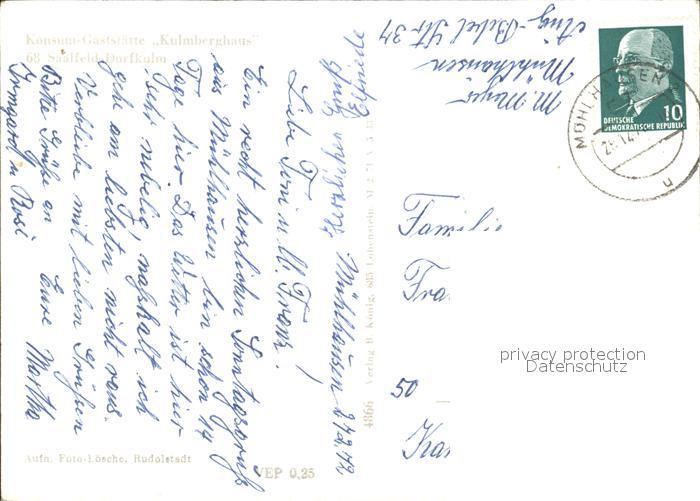 Konsum-Gaststätte „Kulmberghaus"
68 Saalfeld-Dorfkulm
Mühlhausen 27.2.72
Liebe Toni u. Ill. Franz!
Ein recht herzlichen Sonntagsgruß
aus Mühlhausen bin schon 14
Tage hier. Das Wetter ist hier
sehr nebelig, naßkalt ich
geh am liebsten nicht raus.
Verbleibe mit lieben Grüßen
Eure Martha
Bitte Grüße an
Irmgard u. Rosi
Herzlichen Gruß Elfriede
Aufn. Foto-Lösche, Rudolstadt
VEP 0,25
4866 Verlag H. König, 685 Lobenstein
M. Meyer
Mühlhausen
Aug.-Bebel Str. 34
10
DEUTSCHE
DEMOKRATISCHE REPUBLIK
MÜHLHAUSEN
u
Familie
Fra
50
Kar
privacy protection
Datenschutz